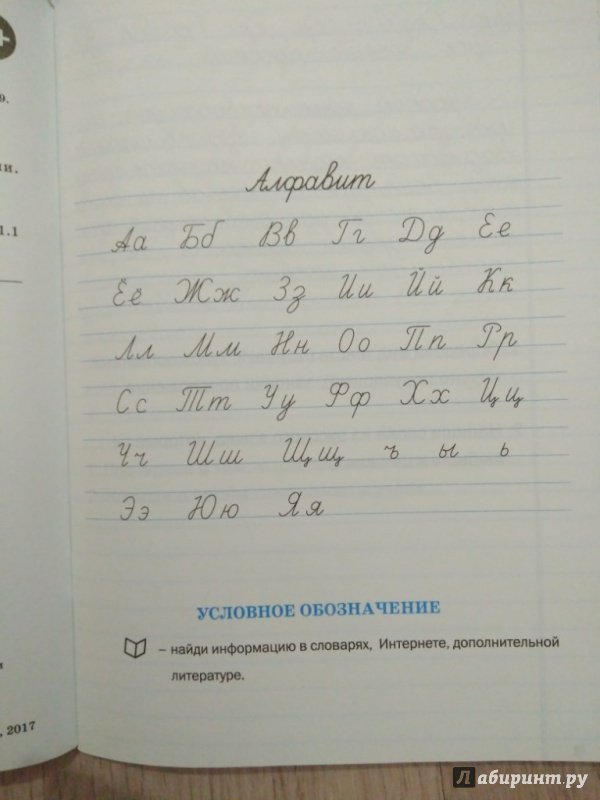 9.
ги.
1.1
, 2017
Алфавит
Аа Бб Вв Гг Дд Ее
Ёё Жж Зз Ии Йй Кк
Лл Мм Нн Оо Пп Рр
Сс Тт Уу Фф Хх Цц
Чч Шш Щщ ъ ы ь
Ээ Юю Яя
УСЛОВНОЕ ОБОЗНАЧЕНИЕ
– найди информацию в словарях, Интернете, дополнительной
литературе.
Лабиринт.ру